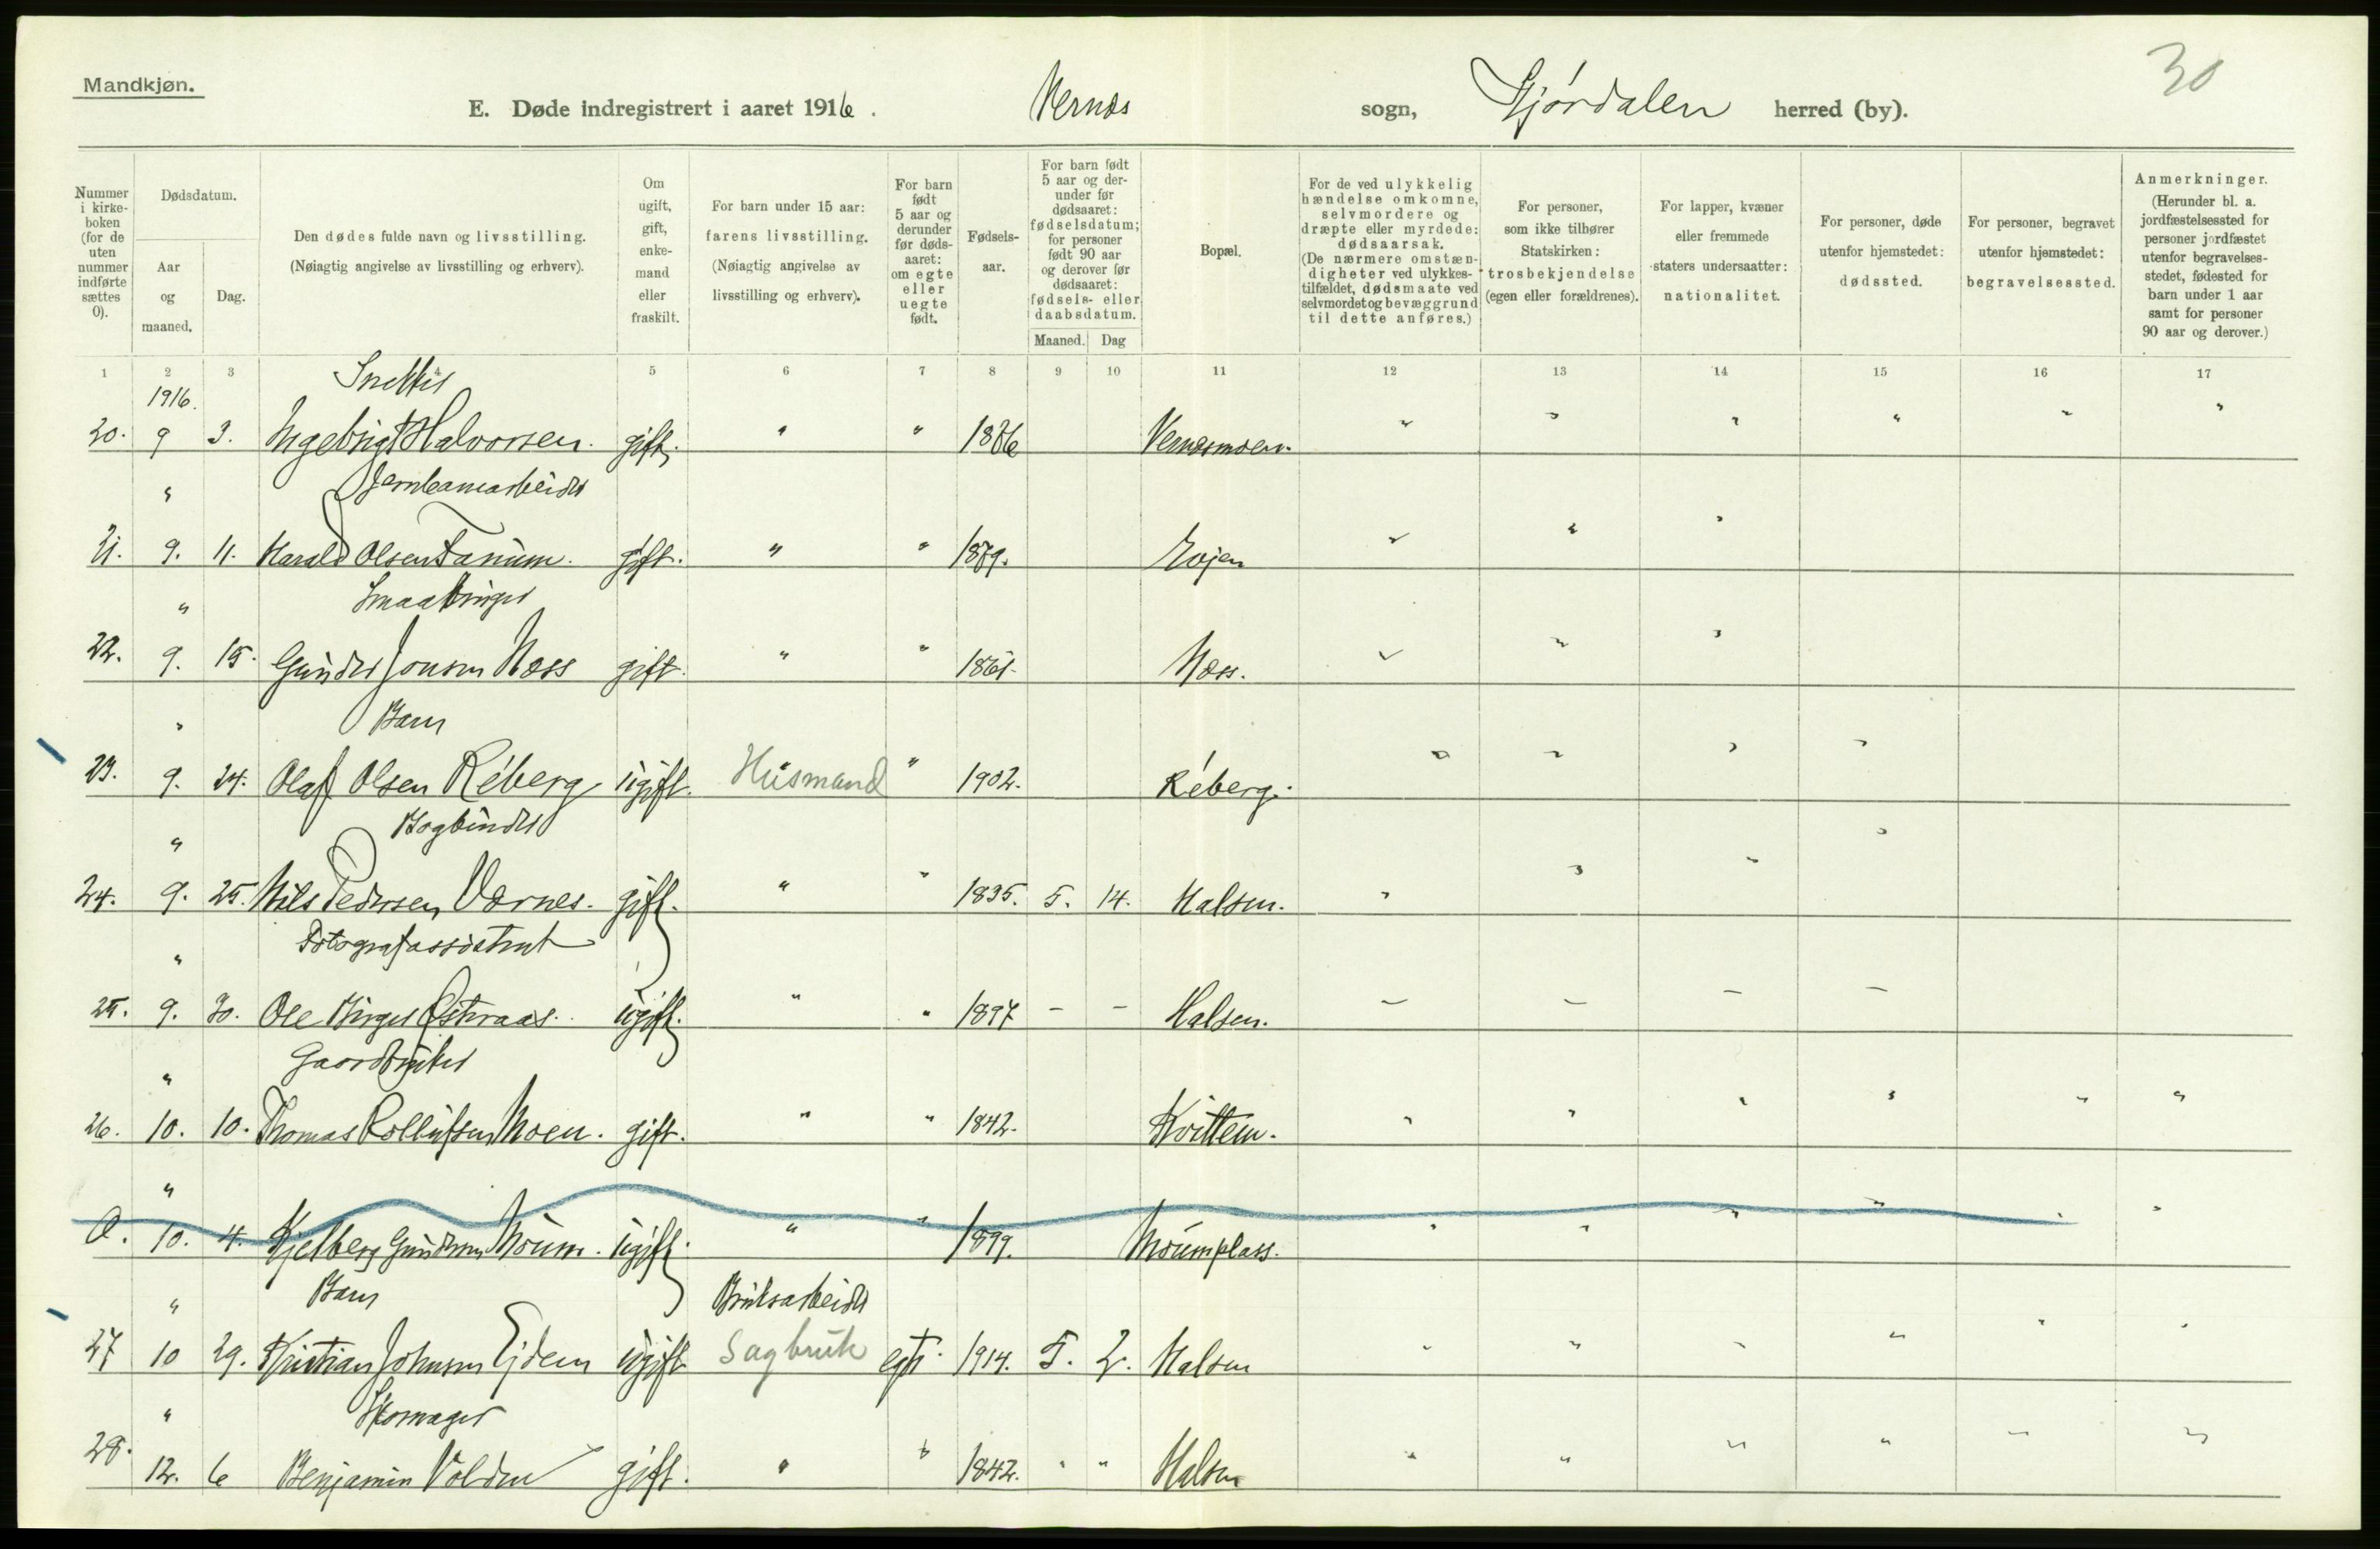 Mandkjøn.
30
E. Døde indregistrert i aaret 1916. Vernes sogn, Stjørdalen herred (by).
Nummer i kirkeboken (for de uten nummer indførte sættes 0).
Dødsdatum.
Aar og maaned.
Dag.
Den dødes fulde navn og livsstilling.
(Nøiagtig angivelse av livsstilling og erhverv).
Om ugift, gift, enkemand eller fraskilt.
For barn under 15 aar: farens livsstilling.
(Nøiagtig angivelse av livsstilling og erhverv).
For barn født 5 aar og derunder før dødsaaret: om egte eller uegte født.
Fødselsaar.
For barn født 5 aar og derunder før dødsaaret: fødselsdatum; for personer født 90 aar og derover før dødsaaret: fødsels- eller daabsdatum.
Maaned.
Dag
Bopæl.
For de ved ulykkelig hændelse omkomne, selvmordere og dræpte eller myrdede: dødsaarsak.
(De nærmere omstændigheter ved ulykkestilfældet, dødsmaate ved selvmordet og bevæggrund til dette anføres.)
For personer, som ikke tilhører Statskirken: trosbekjendelse (egen eller forældrenes).
For lapper, kvæner eller fremmede staters undersaatter: nationalitet.
For personer, døde utenfor hjemstedet: dødssted.
For personer, begravet utenfor hjemstedet: begravelsessted.
Anmerkninger.
(Herunder bl. a. jordfæstelsessted for personer jordfæstet utenfor begravelsesstedet, fødested for barn under 1 aar samt for personer 90 aar og derover.)
1 2 3 4 5 6 7 8 9 10 11 12 13 14 15 16 17
1916. Snekker
20. 9 3. Ingebrigt Halvorsen. gift. " " 1876 Vernesmoen. " " " " " "
" Jernbanearbeider
21. 9. 11. Harald Olsen Fanum. gift. " " 1879. Evjen " " "
" Smaabruger
22. 9. 15. Gunder Jonsen Næss gift. " " 1861. Næss. " " "
" Barn
23. 9. 24. Olaf Olsen Réberg ugift. Husmand " 1902. Réberg. " " " "
" Bogbinder
24. 9. 25. Nils Pedersen Værnes. gift. " " 1835. 5. 14. Halsen. " " " "
" Fotografassistent
25. 9. 30. Ole Birger Østeraas. ugift. " " 1897 - - Halsen. - - - -
" Gaardbruker
26. 10. 10. Thomas Rollufsen Moen. gift. " " 1842. Kvittem. " " " " " "
"
0. 10. 4. Kjelberg Gundersen Moum. ugift. " " 1899. Moumplass. " " " " " "
" Barn Bruksarbeider
27 10 29. Kristian Johnsen Ejdem ugift Sagbruk egte. 1914. 5. 2. Halsen " " " " " "
" Skomager
28. 12. 6 Benjamin Volden gift. " " 1842. " " Halsen " " " " " "